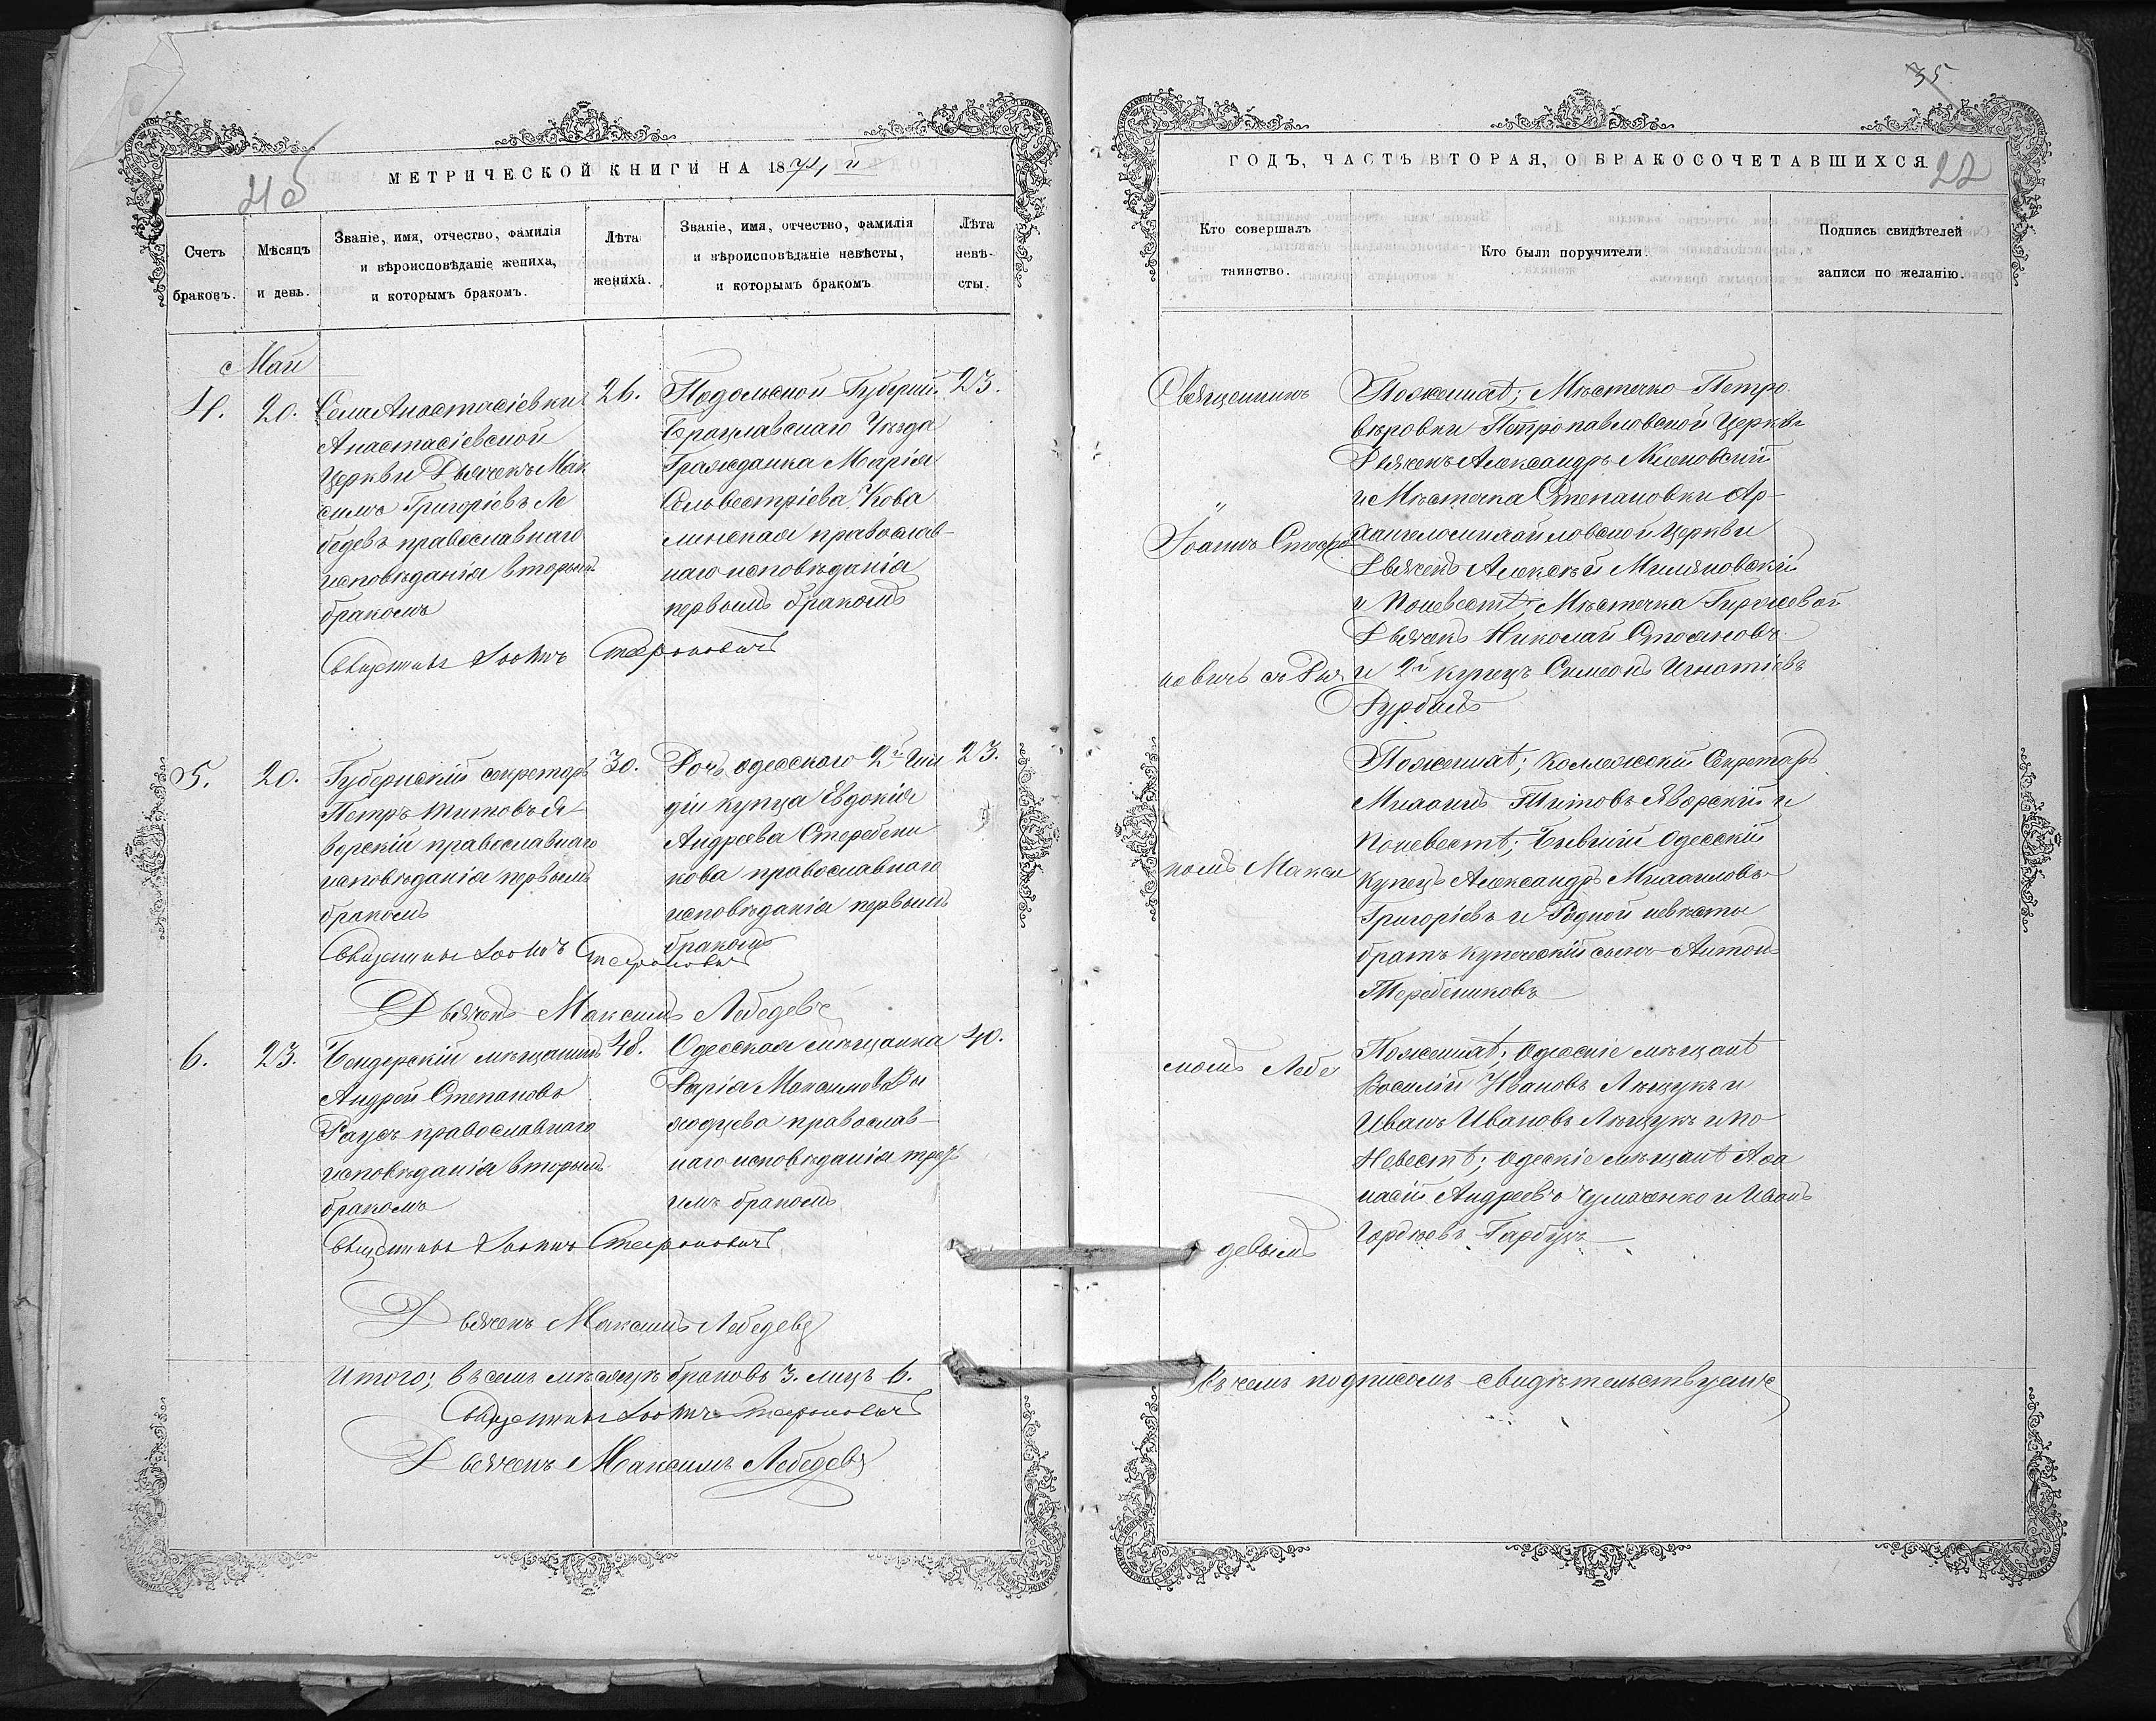 МЕТРИЧЕСКОЙ КНИГИ НА 1874 й
21 об
Счетъ браковъ.
Мѣсяцъ и день.
Званіе, имя, отчество, фамилія
и вѣроисповѣданіе жениха,
и которымъ бракомъ.
Лѣта
жениха.
Званіе, имя, отчество, фамилія
и вѣроисповѣданіе невѣсты,
и которымъ бракомъ
Лѣта
невѣ-
сты.
Май
4.
20.
Села Анастасіевки
Анастасіевской
Церкви Дьячекъ Мак
симъ Григорівъ Ле
бедевъ православнаго
исповѣданія вторымъ
бракомъ
26.
Подольской Губерніи
Брацлавскаго Уѣзда
Гражданка Марія
Сельвестріева Кова
линская православ-
наго исповѣданія
первымъ бракомъ
23.
Священникъ Іоаннъ Стефоновичъ
5.
20.
Губернскій секретарь
Петръ Титовъ Я
ворскій православнаго
исповѣданія первымъ
бракомъ
30.
Дочь одесскаго 2й Гил
діи купца Евдокія
Андреева Стеребени
кова православнаго
исповѣданія первымъ
бракомъ
23.
Священникъ Іоаннъ Стефоновичъ
Дьячекъ Максимъ Лебедевъ
6.
23.
Бендерскій мѣщанинъ
Андрей Степановъ
Рацъ православнаго
исповѣданія вторымъ
бракомъ
48.
Одесская мѣщанка
Дарія Максимова
православ-
наго исповѣданія треть
имъ бракомъ
40.
Священникъ Іоаннъ Стефоновичъ
Дьячекъ Максимъ Лебедевъ
Итого; въ семъ мѣсяцѣ браковъ 3. лицъ 6.
Священникъ Іоаннъ Стефоновичъ
Дьячекъ Максимъ Лебедевъ
35
ГОДЪ, ЧАСТЬ ВТОРАЯ, О БРАКОСОЧЕТАВШИХСЯ
22
Кто совершалъ
таинство.
Кто были поручители.
Подпись свидѣтелей
записи по желанію.
Священникъ
Іоаннъ Стефо
новичъ съ Дья
комъ Макси
момъ Лебе
девымъ
По женихѣ; Мѣстечко Петро
вѣровки Петропавловской Церкви
Дьячекъ Александръ
и Мѣстечка Степановки Ар-
хангеломихайловской Церкви
Дьячекъ Алексѣй
и по невестѣ; Мѣстечка
Дьячекъ Николай Стояновъ
и 2й купецъ Симеонъ Игнатіевъ
Дурбалъ
По женихѣ; Колежскій Секретарь
Михаилъ Титовъ Яворскій и
по невестѣ; Бывшій Одесскій
купецъ Александръ Михаиловъ
Григоріевъ и Родной невѣсты
братъ купеческій сынъ Антонъ
Теребениковъ
По женихѣ; Одескіе мѣщанѣ
Василій Ивановъ Лящукъ и
Иванъ Ивановъ Лящукъ и по
Невестѣ; Одескіе мѣщанѣ Афа
насій Андреевъ Чумаченко и Иванъ
Гордѣевъ Гарбузъ
Въ чемъ подписомъ свидѣтельствуемъ